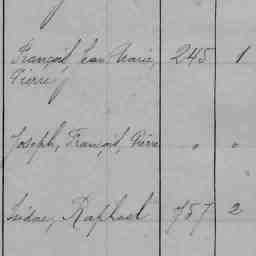 François, Jean Marie, 245 1
Pierre
Joseph, François, Pierre " "
Isidore, Raphael 757 2